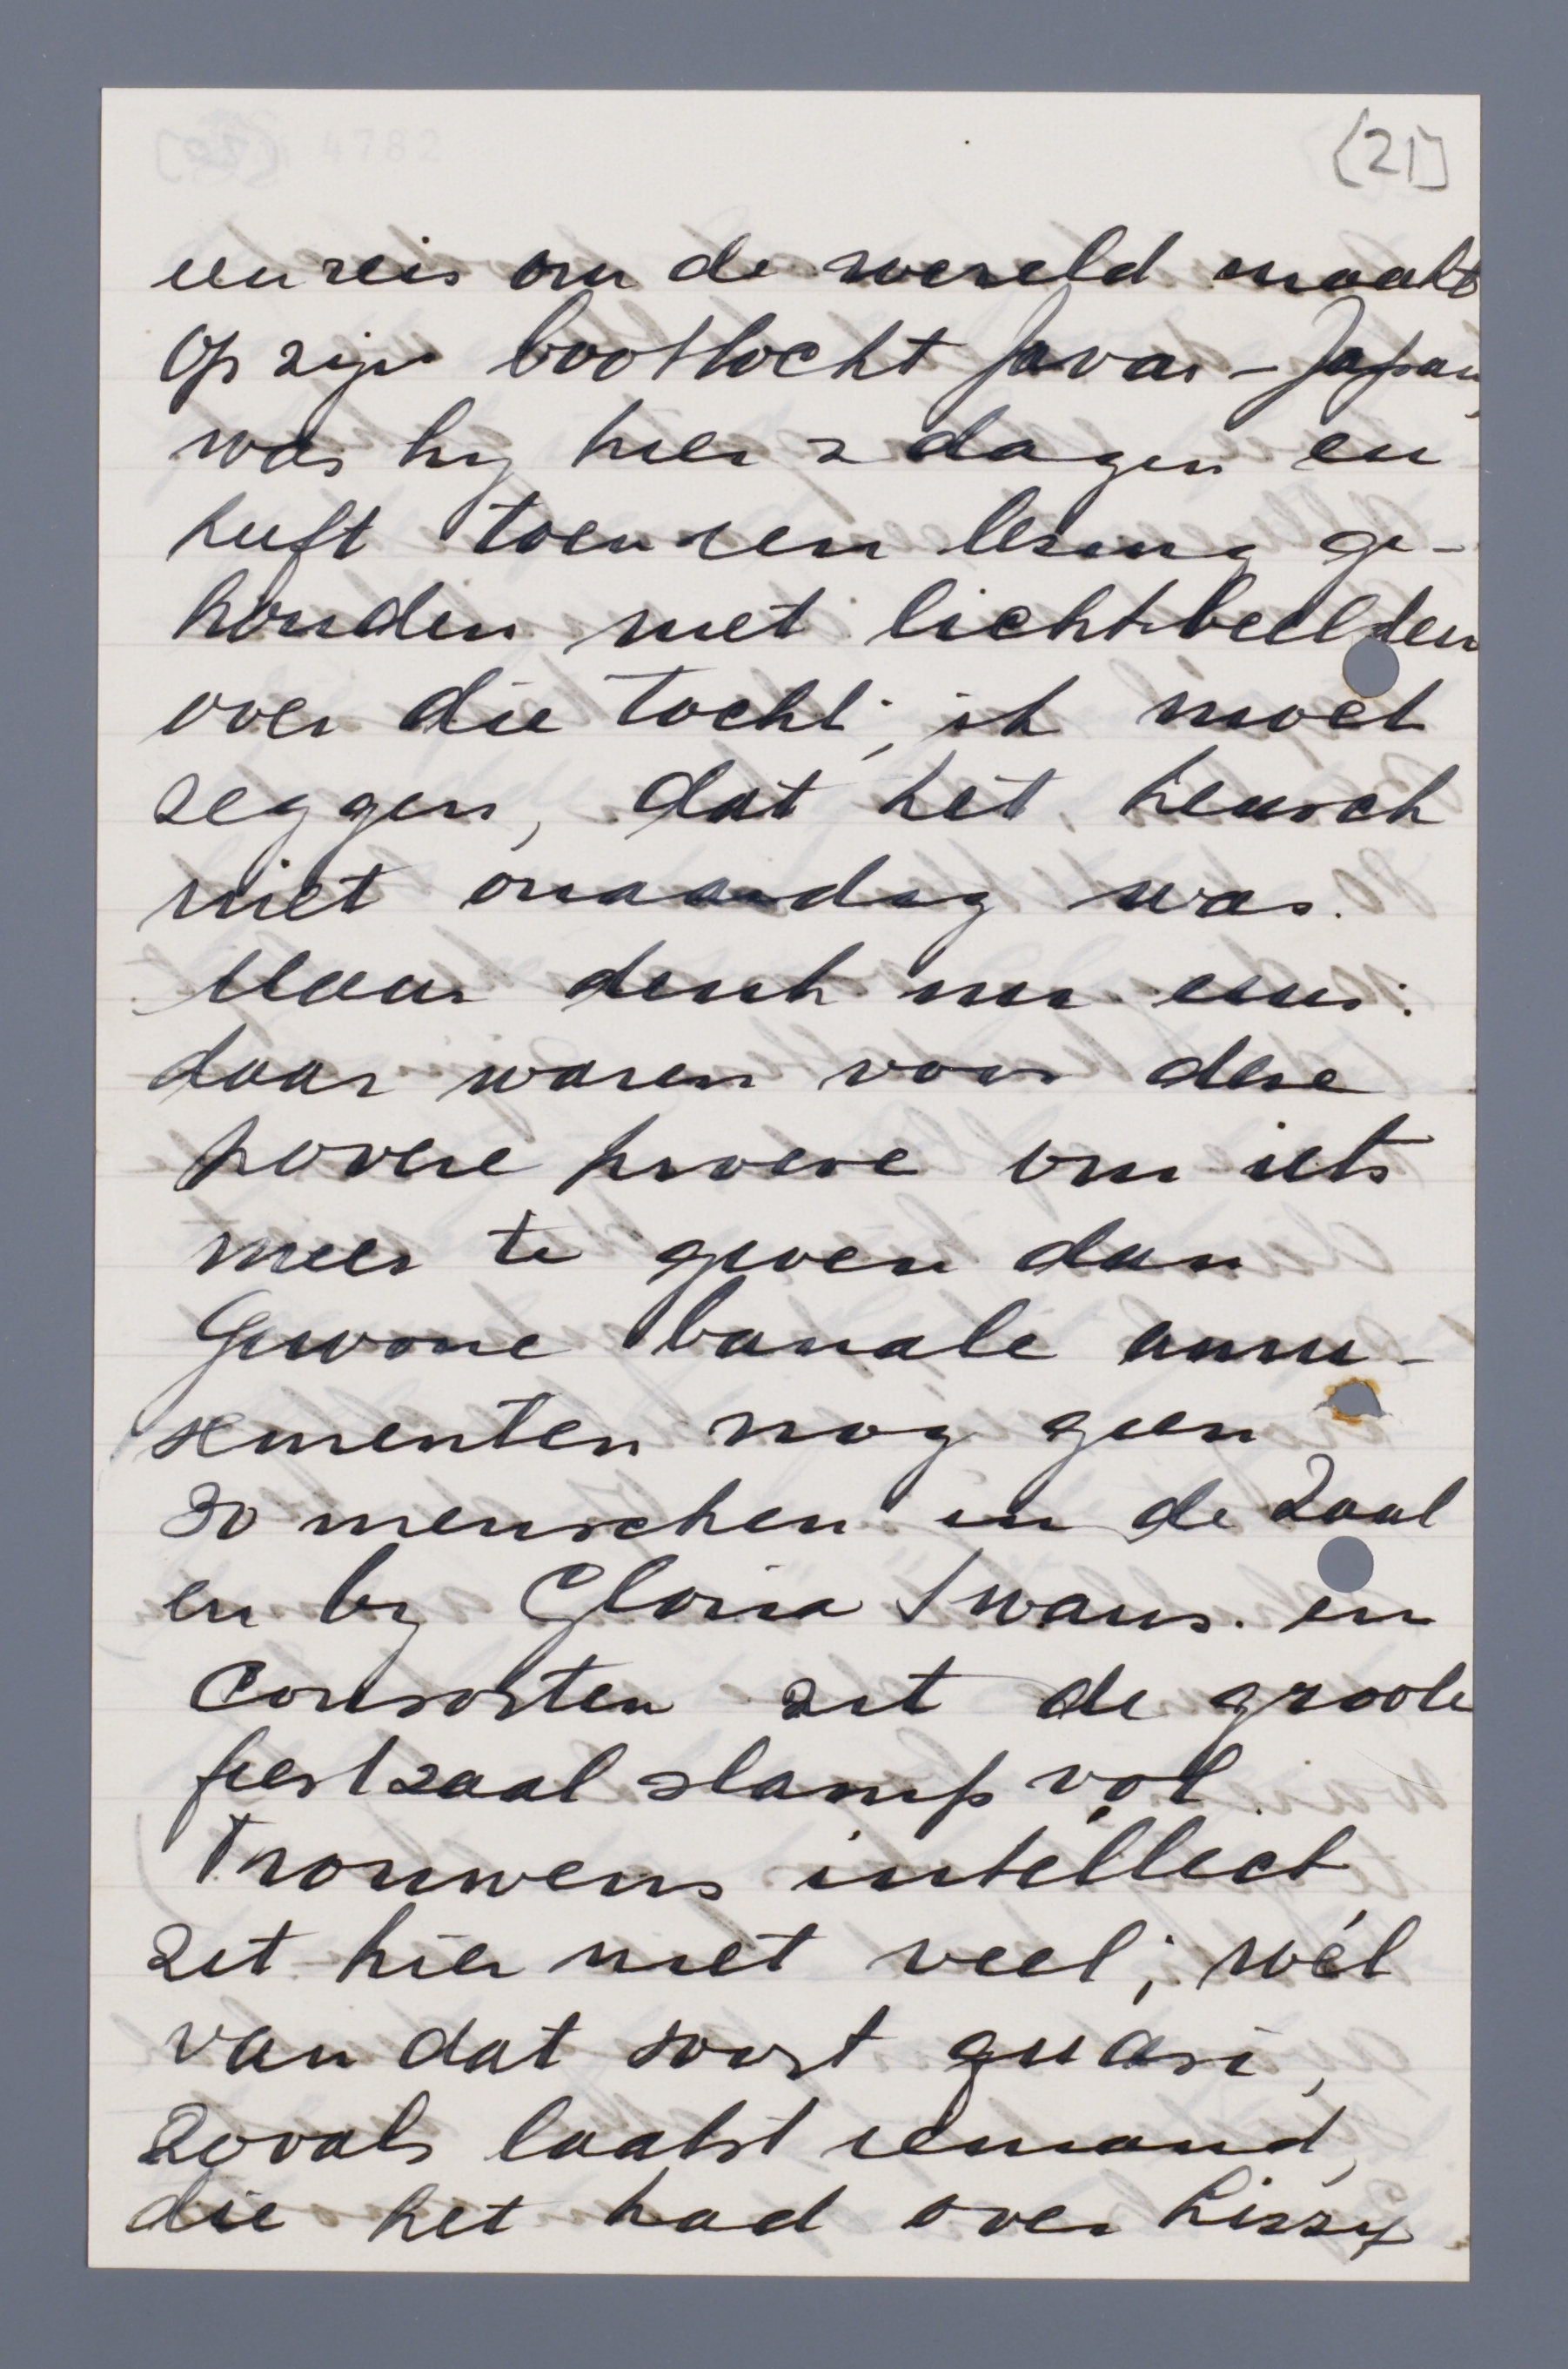 4782
(21)
een reis om de wereld maakt
Op zijn boottocht Java-Japan,
was hij hier 2 dagen en
heeft toen een lezing ge-
houden met lichtbeelden
over die tocht; ik moet
zeggen, dat het heusch
niet onaardig was.
Maar denk nu eens:
daar waren voor deze
povere proeve om iets
meer te geven dan
gewone banale amu-
sementen nog geen
30 menschen in de zaal
en bij Gloria Swans. en
Consorten zit de groote
feestzaal stampvol.
Trouwens intellect
zit hier niet veel; wél
van dat soort quasi,
zooals laatst iemand,
die het had over Lissy